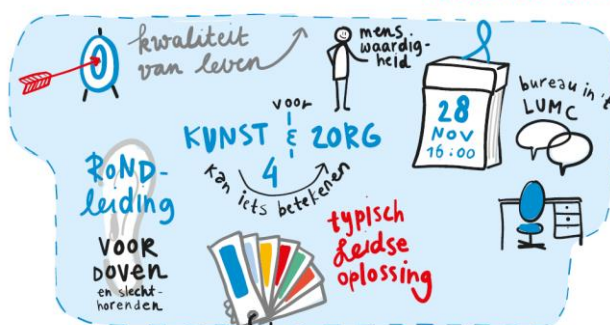 kwaliteit
van leven
mens
waardig-
heid
28
NOV
16:00
bureau in 't
LUMC
voor
KUNST & ZORG
4
kan iets betekenen
RoND-
leiding
VOOR
DOVEN
en slecht-
horenden
typisch
Leidse
oplossing